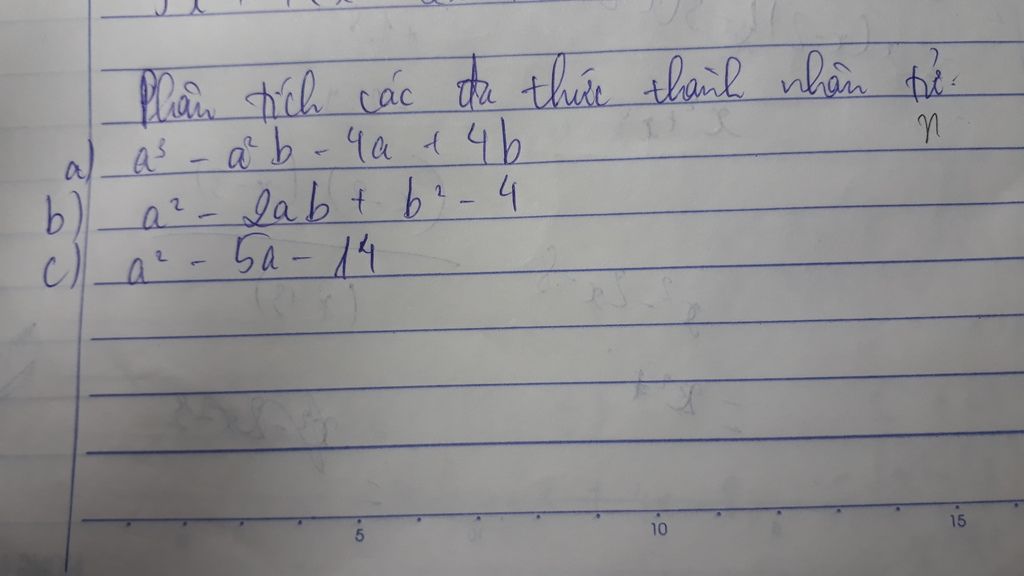 Phân tích các đa thức thành nhân tử:
n
a) a³ - a²b - 4a + 4b
b) a² - 2ab + b² - 4
c) a² - 5a - 14
5 10 15